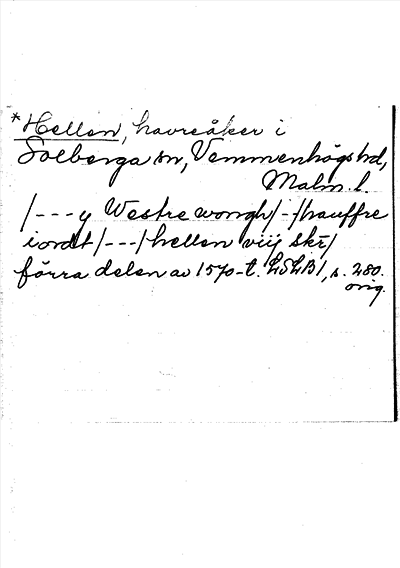 *Hellen, havreåker i
Solberga sn, Vemmenhögs hd,
Malm. l.
/---y Westre wongh/-/hauffre
iordt/---/hellen viij skr/
förra delen av 1570-t. LSLB1, s. 280.
orig.